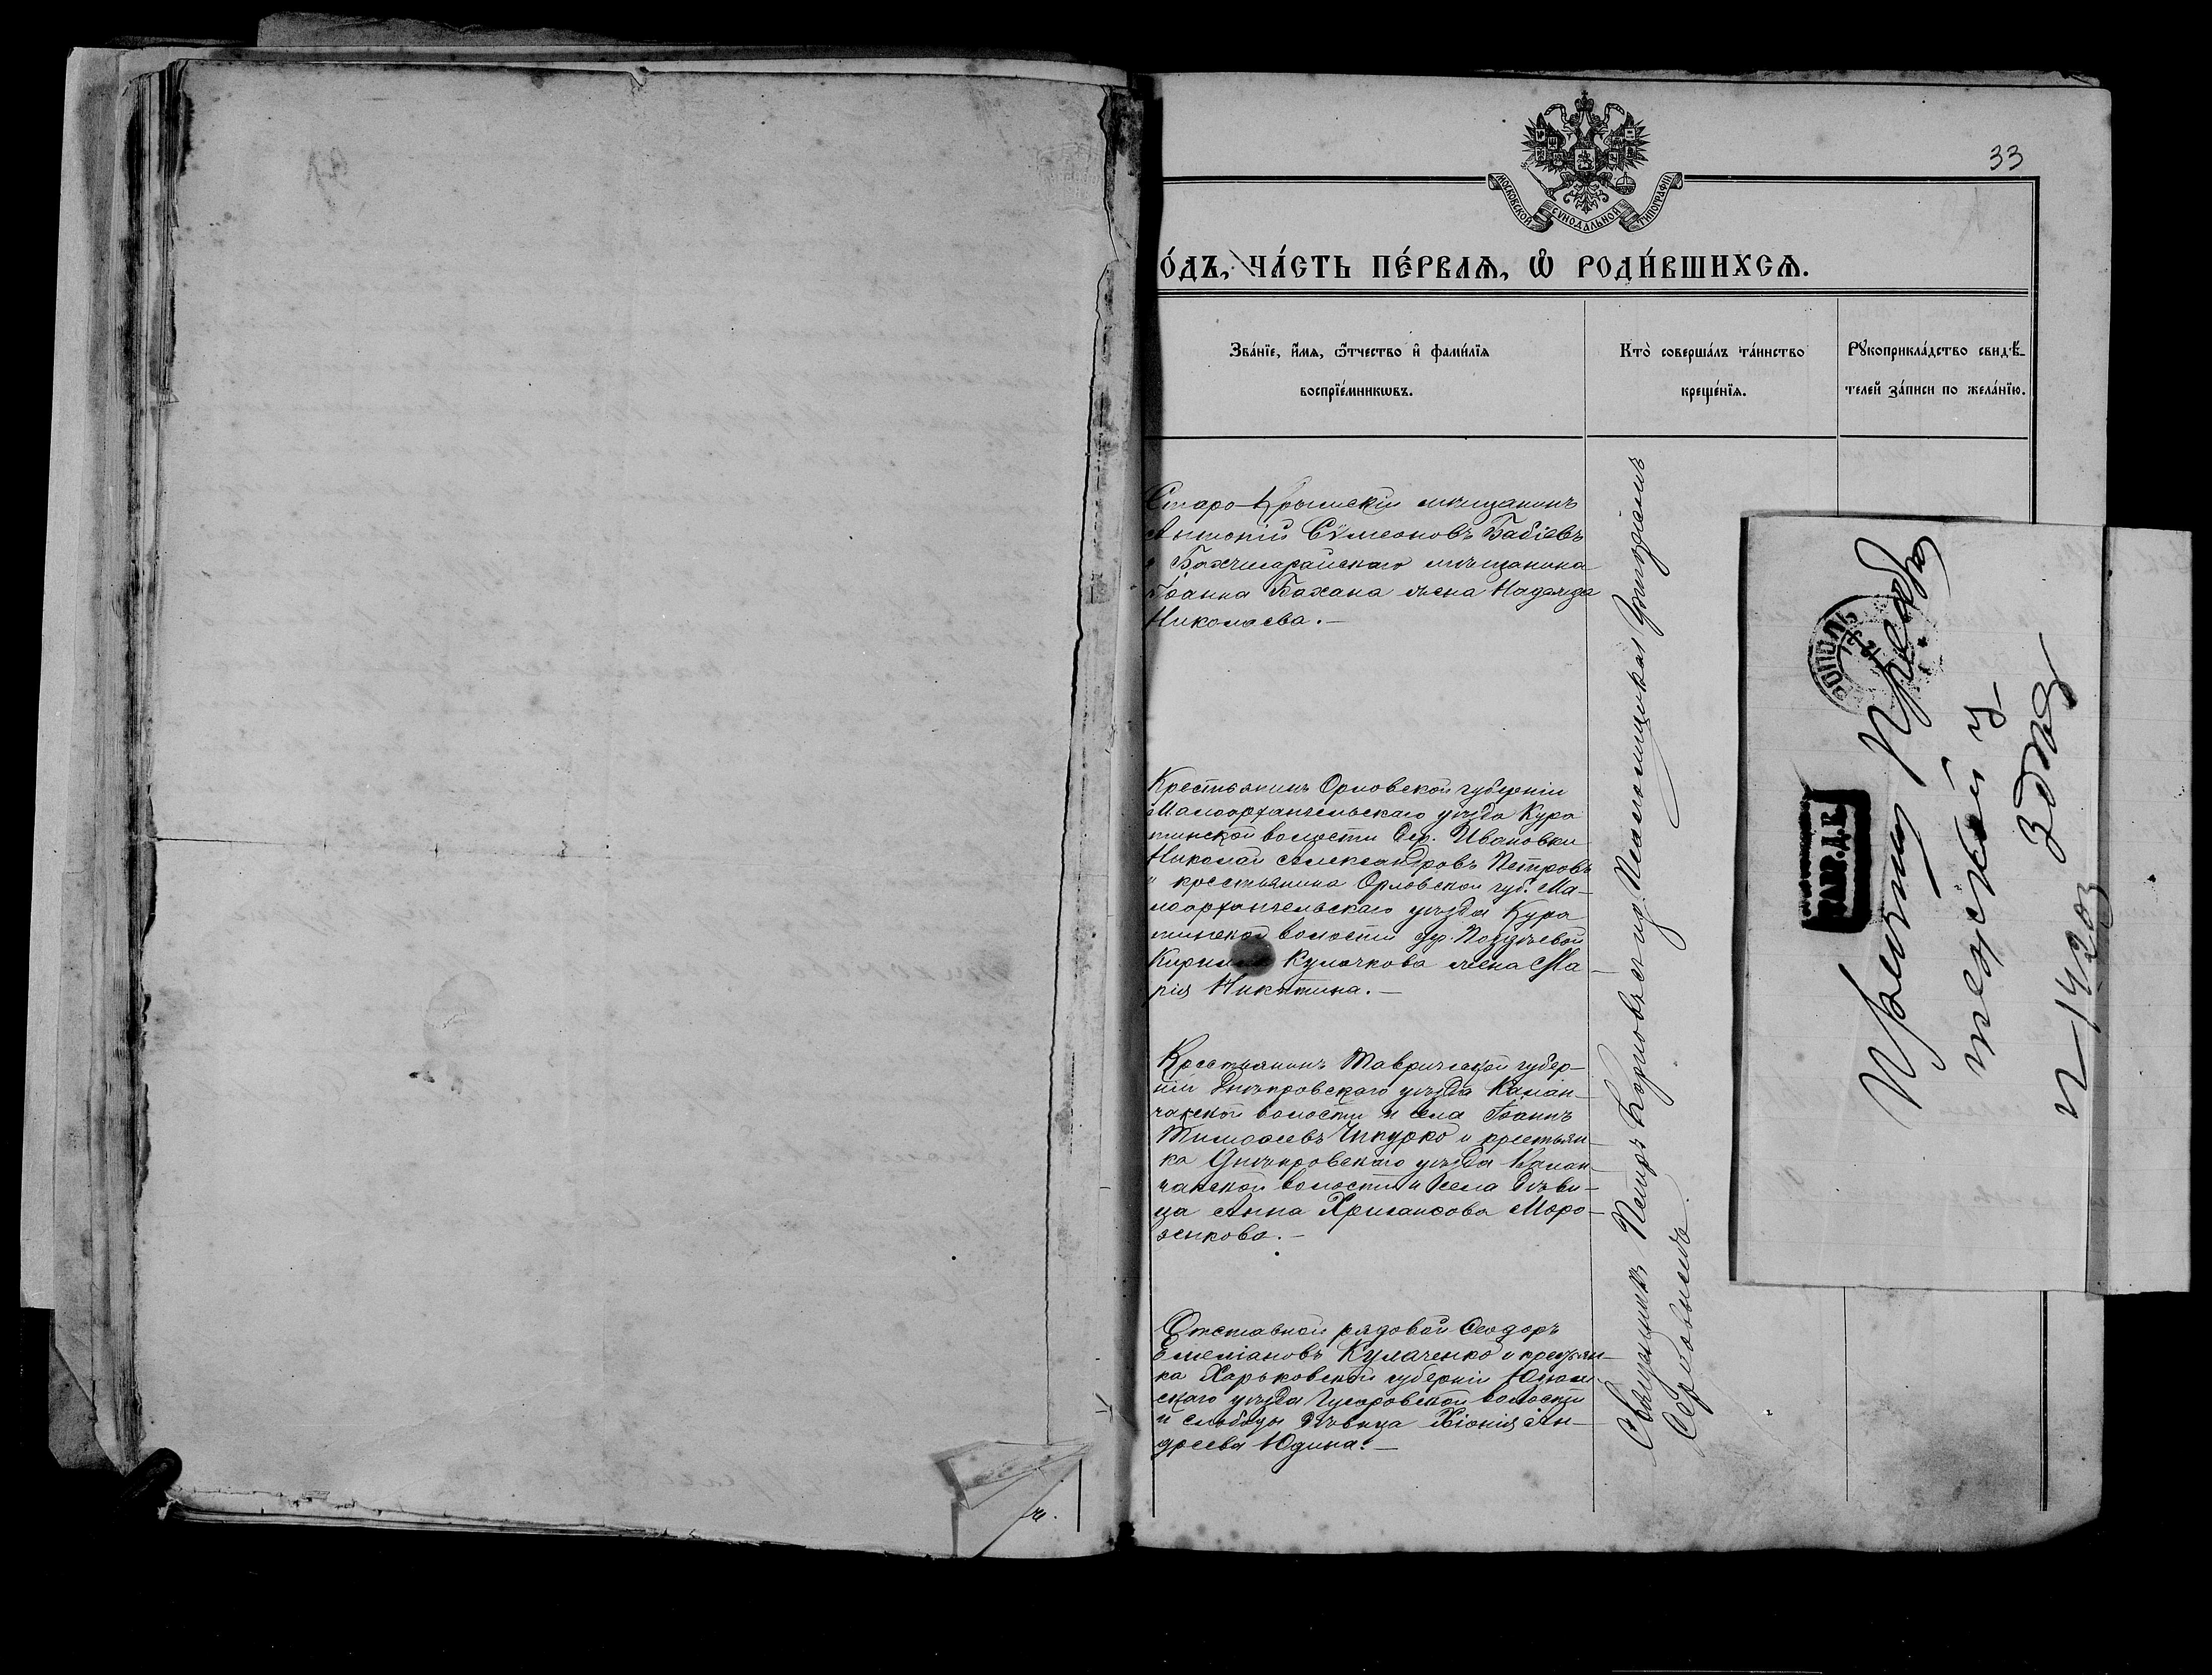 33
МОСКОВСКОЙ СѴНОДАЛЬНОЙ ТИПОГРАФІИ
О́ДЪ, ЧА́СТЬ ПЕ́РВАѦ, Ѽ РОДИ́ВШИХСѦ.
Зва́нїе, и҆́мѧ, ѻ҆́тчество и҆ фами́лїѧ
воспрїе́мникѡвъ.
Кто̀ соверша́лъ та́инство
креще́нїѧ.
Рꙋкоприкла́дство свидѣ́-
телей за́писи по жела́нїю.
Старо-Крымскій мѣщанинъ
Антоній Сѵмеоновъ Бабіевъ
и Бахчисарайскаго мѣщанина
Іоанна Бахана жена Надежда
Николаева.—
Крестьянинъ Орловской губерніи
Малоархангельскаго уѣзда Кура
кинской волости дер. Ивановки
Николай Александровъ Петровъ
и крестьянина Орловской губ. Ма-
лоархангельскаго уѣзда Кура
кинской волости др.
Кирилла Кулачкова жена Ма-
рія Никитина.—
Крестьянинъ Таврической губер-
ніи Днѣпровскаго уѣзда Калан-
чакской волости и села Іоаннъ
Тимоѳеевъ Чипурко и крестьян-
ка Днѣпровскаго уѣзда Калан-
чакской волости и села дѣви-
ца Анна Хрисанѳова Моро-
зенкова.—
Отставной рядовой Ѳеодоръ
Емеліановъ Кулаченко и крестьян-
ка Харьковской губерніи Изюм
скаго уѣзда Гусаровской волости
и слободы дѣвица Хіонія Ан-
дреева Юдина.—
Священникъ Петръ Карповъ съ и. д. Псаломщика
Серповымъ.
ТАВР. Д. К.
№ 14203